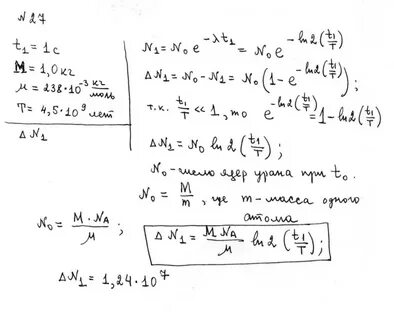 N 27
t₁ = 1 с
M = 1,0 кг
μ = 238·10⁻³ кг/моль
T = 4,5·10⁹ лет
Δ N₁
N₁ = N₀ e^(-λt₁) = N₀ e^(-ln2(t₁/T))
Δ N₁ = N₀ - N₁ = N₀ (1 - e^(-ln2(t₁/T)));
т.к. t₁/T << 1, то e^(-ln2(t₁/T)) = 1 - ln2(t₁/T)
Δ N₁ = N₀ ln2 (t₁/T);
N₀ - число ядер урана при t₀.
N₀ = M/m, где m - масса одного
атома
N₀ = M·N_A/μ ;
Δ N₁ = M N_A/μ ln2 (t₁/T);
Δ N₁ = 1,24·10⁷